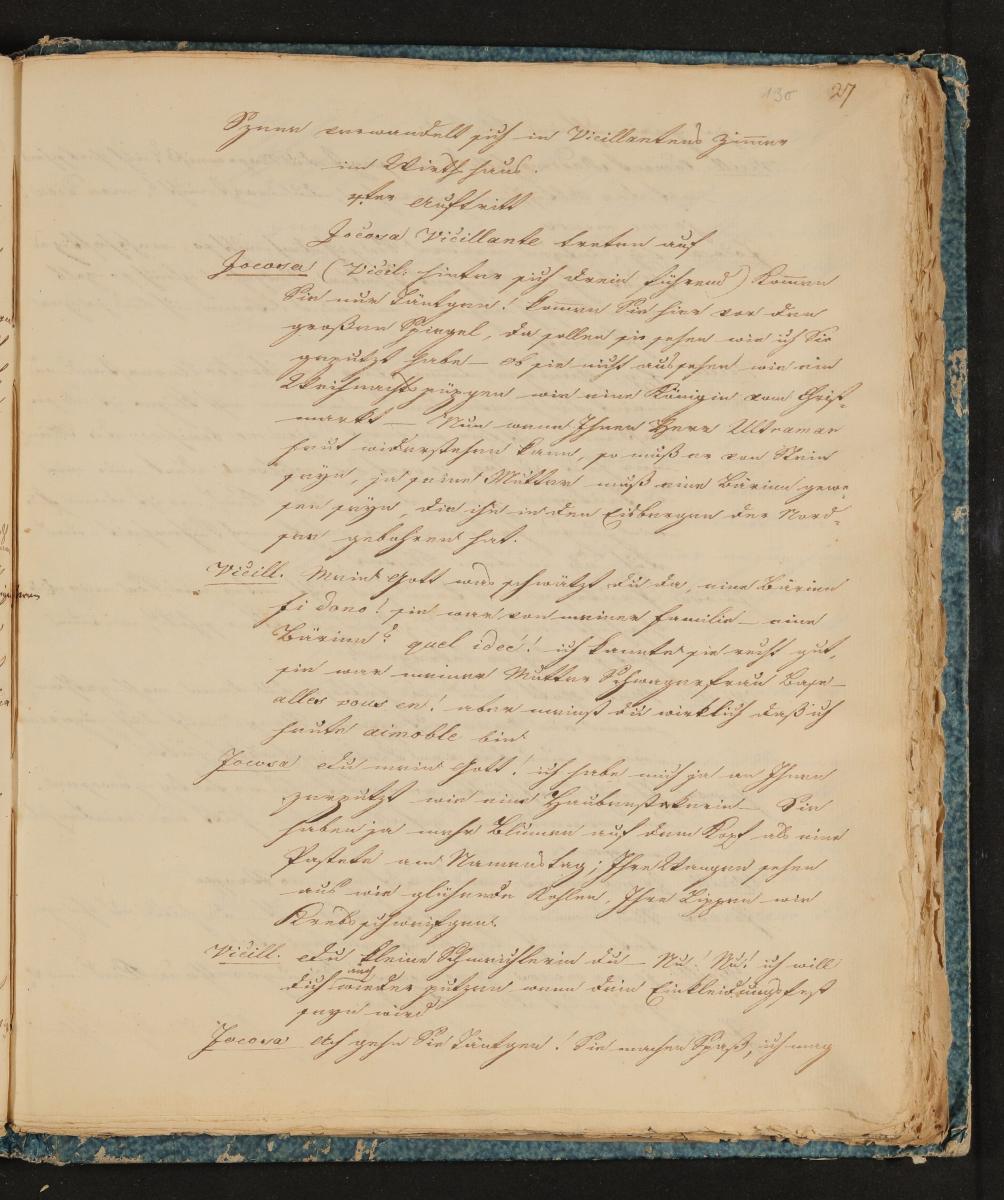 130 27
Szene verwandelt sich in Vieillantens Zim̅er
im Wirthshaus.
ter Auftritt
Jocosa Vieillante treten auf
Jocosa (Vieil: hinter sich drein führend) Kom̅en
Sie nur Täntgen! kom̅en Sie hier vor den
großen Spiegel, da sollen sie sehen wie ich Sie
geputzt habe – ob sie nicht aussehen wie ein
Weihnachtspüppgen wie eine Königin vom Christ-
markt – Nun wenn Ihnen Herr Ultramar
heut widerstehen kann, so muß er von Stein
seyn, ja seine Mutter muß eine Bärinn gewe-
sen seyn, die ihn in den Eisbergen der Nord-
see gebohren hat.
Vieill. Mein Gott was schwätzt du da, eine Bärinn
fi donc! sie war von meiner Familie – eine
Bärinn? quel ideé! ich kannte sie recht gut,
sie war meiner Mutter Schwagersfrau Base –
alles vous en! aber meinst du wirklich daß ich
heute aimable bin.
Jocosa Du mein Gott! ich habe mich ja an Ihnen
zerputzt wie eine Haubensteckerin – Sie
haben ja mehr Blumen auf dem Kopf als eine
Pastete am Namenstag; Ihre Wangen sehen
aus wie glühende Kohlen, Ihre Lippen wie
Krebsschweifgen.
Vieill. Du kleine Schmeichlerin du – Nu! Nu! ich will
auch
dich wieder putzen wenn dein Einkleidungsfest
seyn wird
Jocosa Ach gehn Sie Täntgen! Sie machen Spaß, ich mag